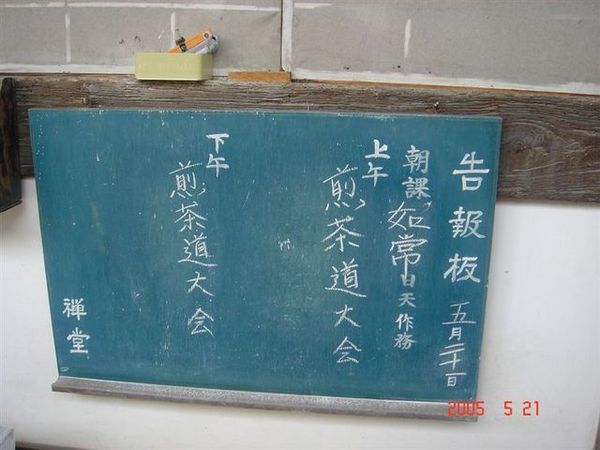 告報板 五月二十一日
朝課 如常 日天作務
上午
煎茶道大会
下午
煎茶道大会
禅堂
2005 5 21